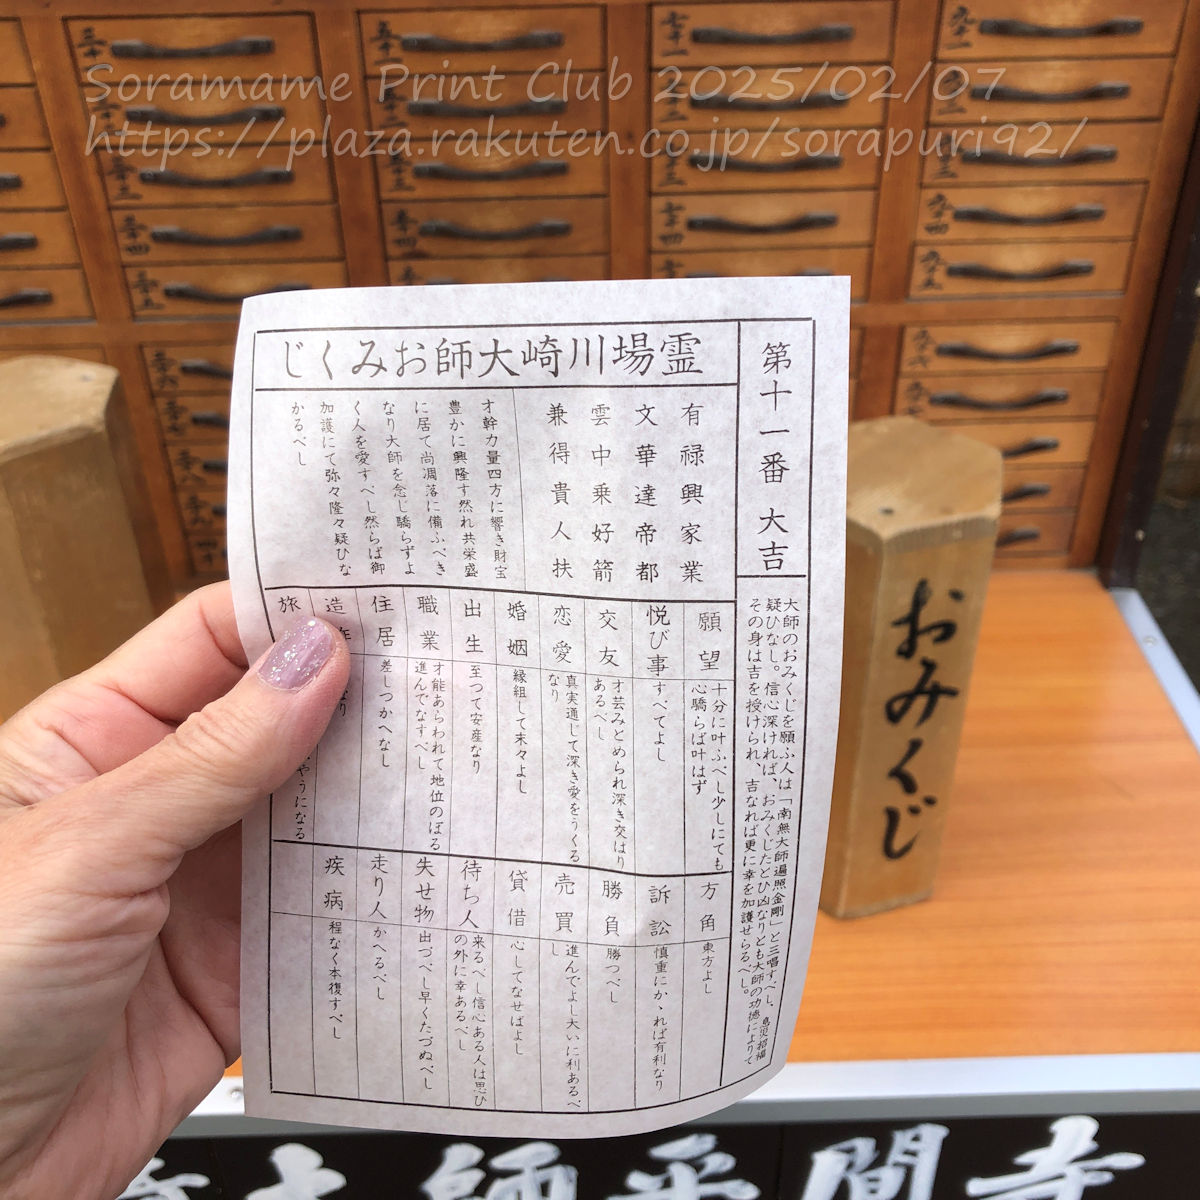 Soramame Print Club 2025/02/07
https://plaza.rakuten.co.jp/sorapuri92/
霊場川崎大師おみくじ
第十一番 大吉
有禄興家業
文華達帝都
雲中乗好箭
兼得貴人扶
才幹力量四方に響き財宝
豊かに興隆す然れ共栄盛
に居て尚凋落に備ふべき
なり大師を念し驕らずよ
く人を愛すべし然らば御
加護にて弥々隆々疑ひな
かるべし
大師のおみくじを願ふ人は「南無大師遍照金剛」と三唱すべし、息災招福
疑ひなし。信心深ければ、おみくじたとひ凶なりとも大師の功徳によりて
その身は吉を授けられ、吉なれば更に幸を加護せらるべし。
願望
十分に叶ふべし少しにても
心驕らば叶はず
悦び事
すべてよし
交友
才芸みとめられ深き交はり
あるべし
恋愛
真実通じて深き愛をうくる
なり
婚姻
縁組して末々よし
出生
至つて安産なり
職業
才能あらわれて地位のぼる
進んでなすべし
住居
差しつかへなし
造
旅
やうになる
方角
東方よし
訴訟
慎重にかゝれば有利なり
勝負
勝つべし
売買
進んでよし大いに利あるべ
し
貸借
心してなせばよし
待ち人
来るべし信心ある人は思ひ
の外に幸あるべし
失せ物
出づべし早くたづぬべし
走り人
かへるべし
疾病
程なく本復すべし
おみくじ
大師平間寺